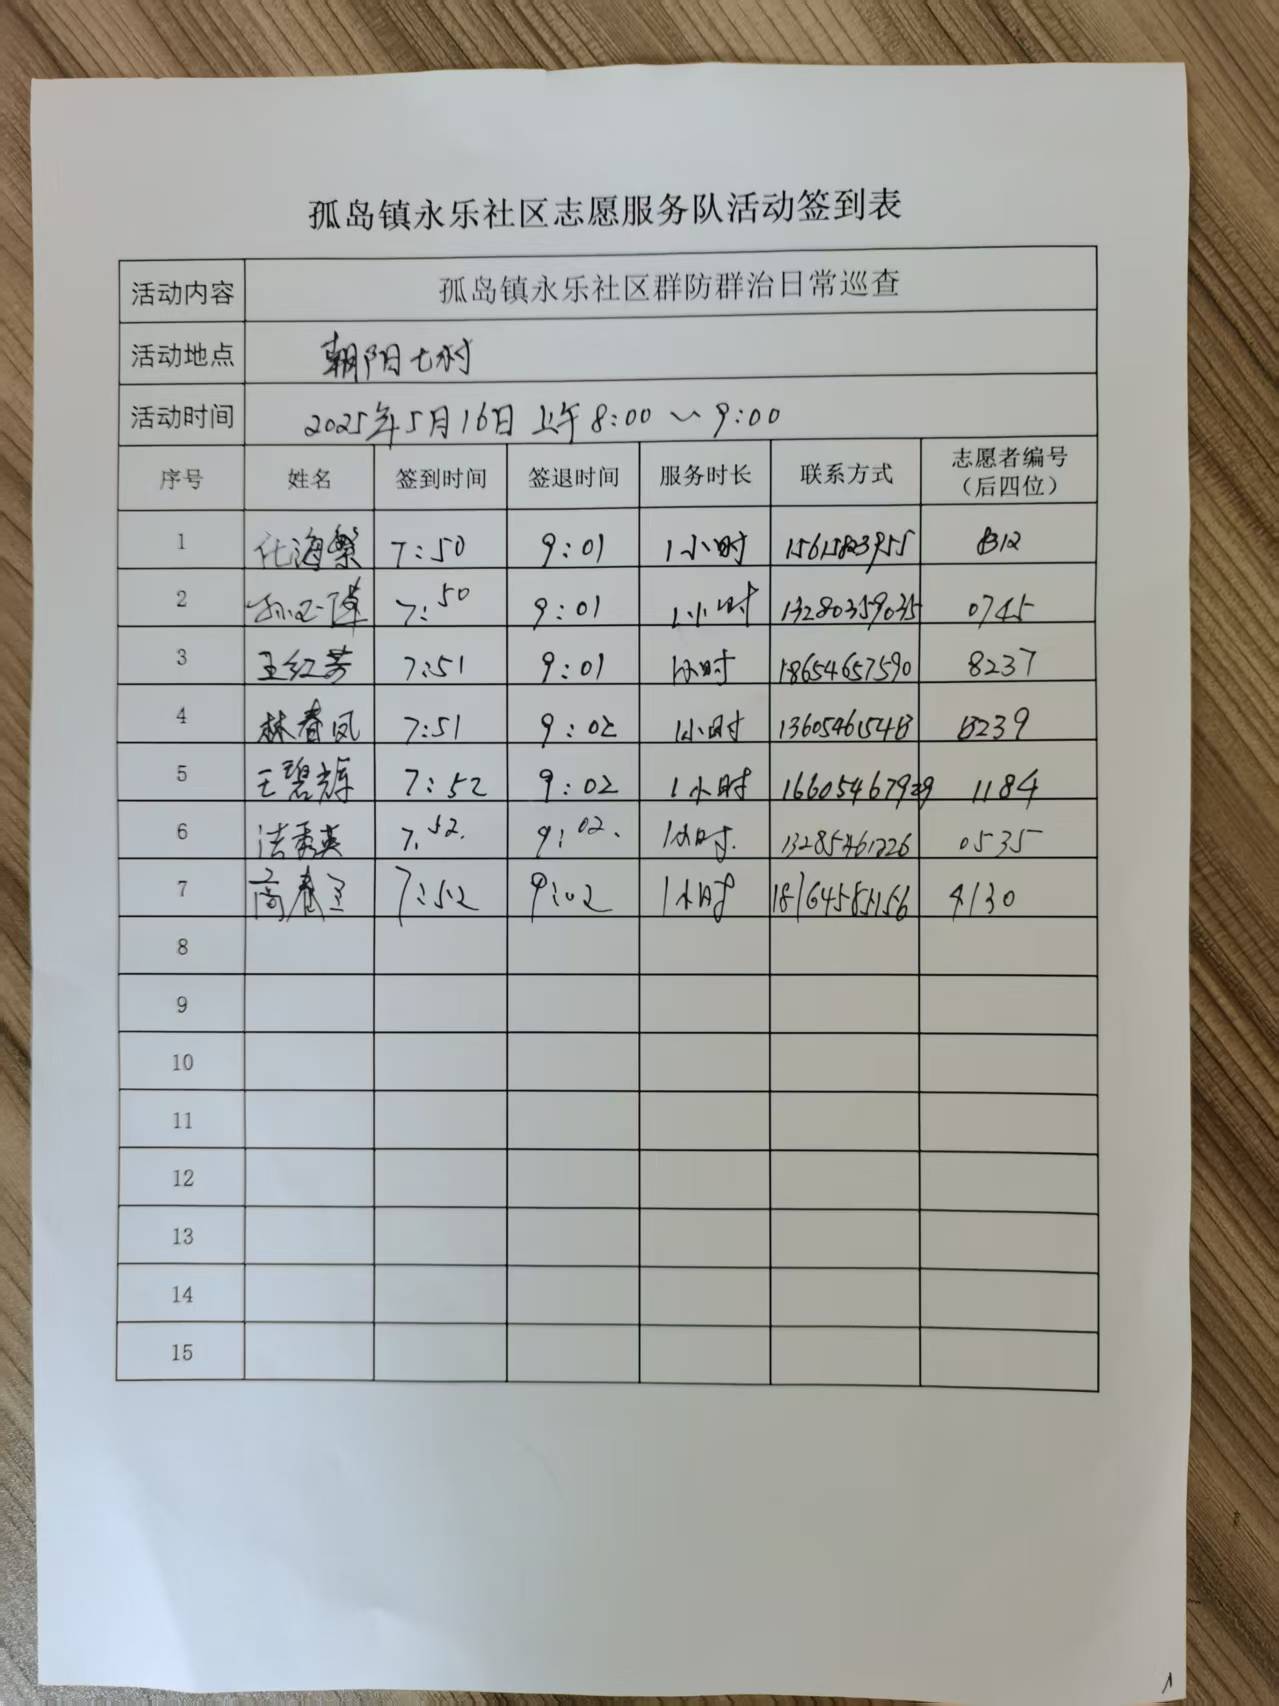 孤岛镇永乐社区志愿服务队活动签到表
活动内容 孤岛镇永乐社区群防群治日常巡查
活动地点 朝阳七村
活动时间 2025年5月16日 上午 8:00～9:00
序号 姓名 签到时间 签退时间 服务时长 联系方式 志愿者编号（后四位）
1 7:50 9:01 1小时
2 7:50 9:01 1小时 13280359035 0745
3 王红芳 7:51 9:01 1小时 18654657590 8237
4 林春凤 7:51 9:02 1小时 8239
5 王碧辉 7:52 9:02 1小时 1184
6 7:52. 9:02. 1小时. 0535
7 7:52 9:02 1小时 4130
8
9
10
11
12
13
14
15